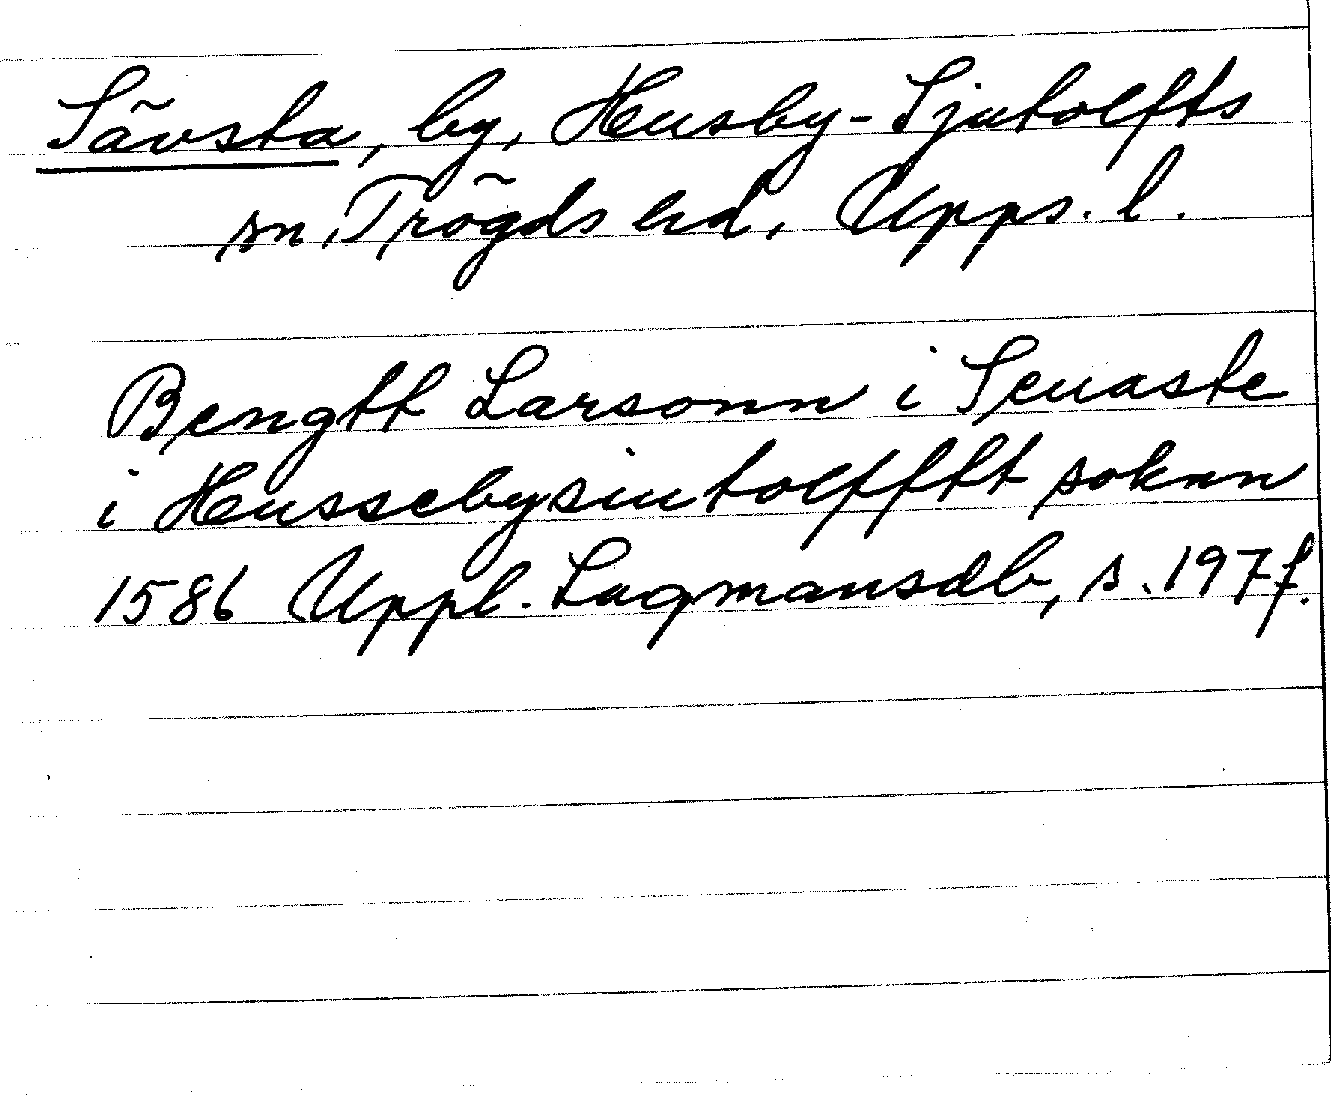 Sävsta, by, Husby-Sjutolfts
sn, Trögds hd, Upps. l.
Bengtt Larsonn i Seuaste
i Hussebysiutolfftt soknn
1586 Uppl. Lagmansdb, s. 197 f.